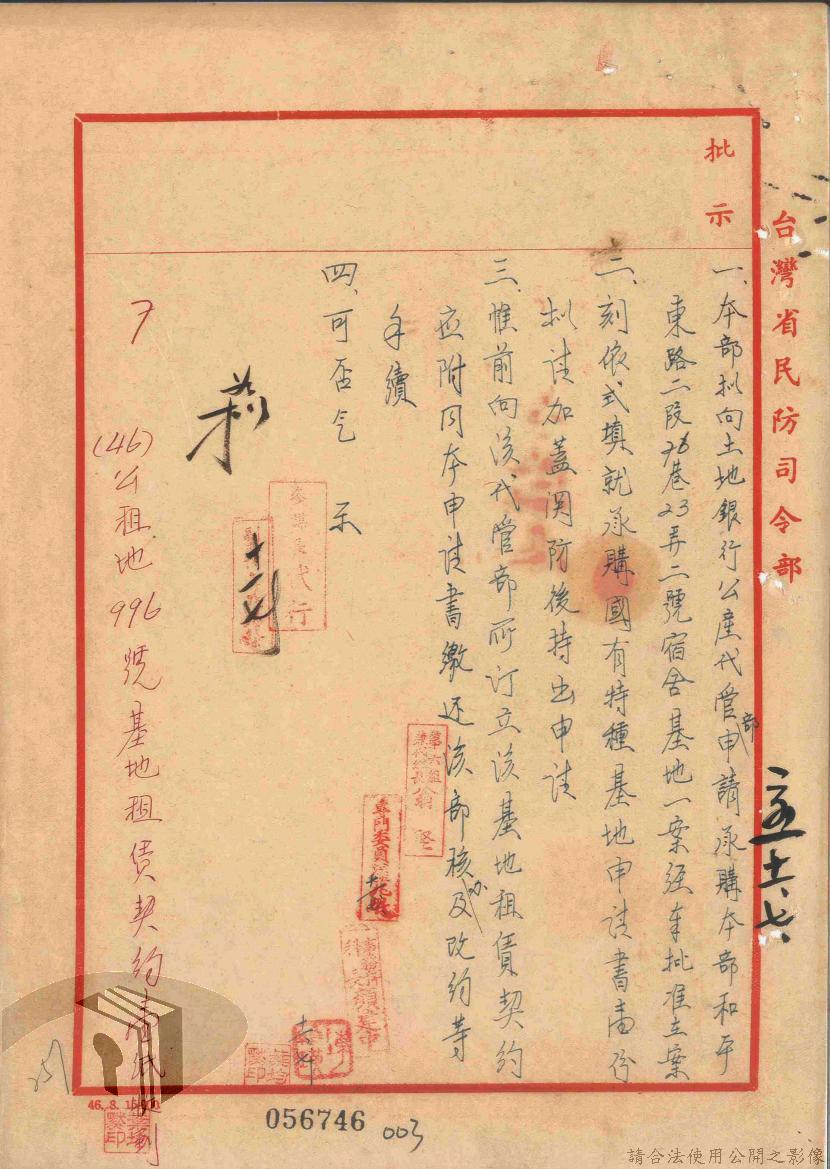 台灣省民防司令部
批示
一、本部拟向土地銀行公產代管部申請承購本部和平
東路二段76巷23弄二號宿舍基地一案經奉批准在案
二、刻依式填就承購國有特種基地申請書壹份
拟請加蓋関防後持出申請
三、惟前向該代管部所訂立該基地租賃契約
应附同本申請書繳还該部核办及改約等
手續
四、可否乞 示
代行
(46)公租地996號基地租賃契約壹紙
46. 8. 15
056746
003
請合法使用公開之影像